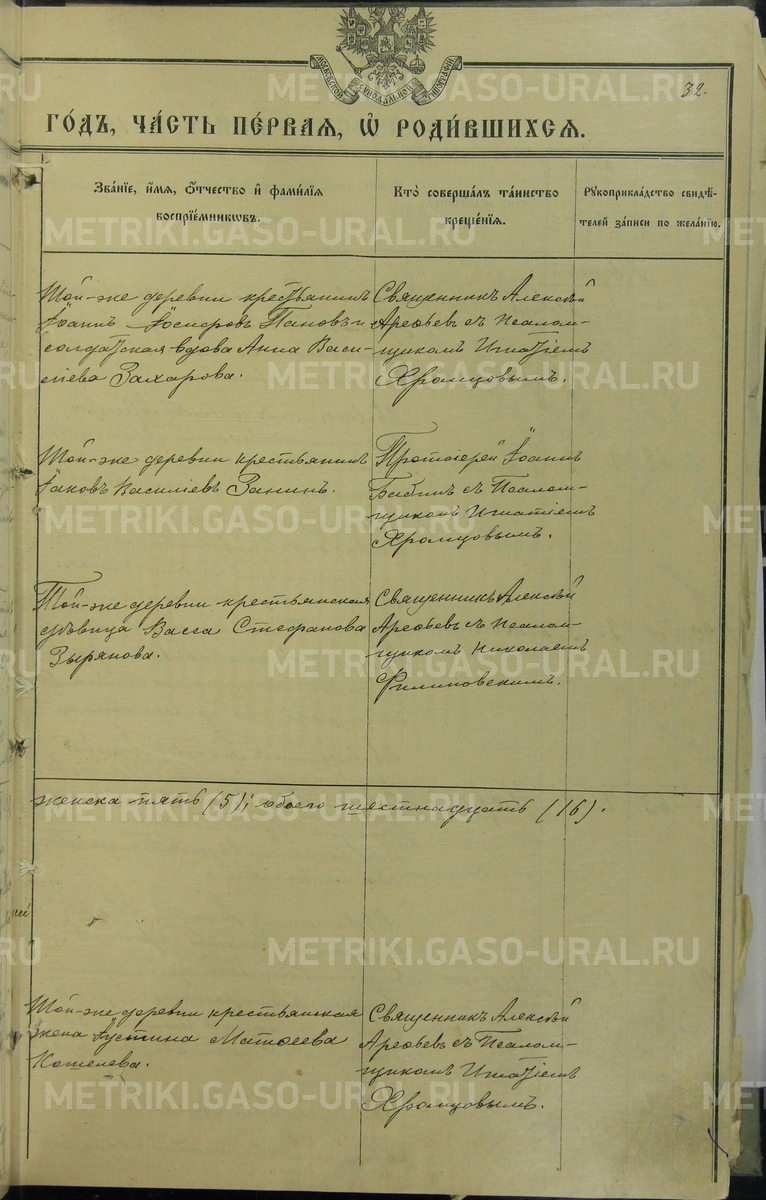 МОСКОВСКОЙ СѴНОДАЛЬНОЙ ТИПОГРАФІИ
32.
ГО́ДЪ, ЧА́СТЬ ПЕ́РВАЯ, Ѡ҆ РОДИ́ВШИХСЯ.
Зва́нїе, и҆́мя, ѻ҆́тчество и҆ фами́лїя
воспрїе́мникѡвъ.
Кто̀ соверша́лъ та́инство
креще́нїя.
Рꙋкоприкла́дство свидѣ́-
телей за́писи по жела́нїю.
Той-же деревни крестьянинъ
Іоаннъ Іосифовъ Пановъ и
солдатская вдова Анна Васи-
лиева Захарова.
Священникъ Алексѣй
Арефьевъ съ Псалом-
щикомъ Игнатіемъ
Хромцовымъ.
Той-же деревни крестьянинъ
Іаковъ Василіевъ Занинъ.
Протоіерей Іоаннъ
Бабинъ съ Псалом-
щикомъ Игнатіемъ
Хромцовымъ.
Той-же деревни крестьянская
дѣвица Васса Стефанова
Зырянова.
Священникъ Алексѣй
Арефьевъ съ Псалом-
щикомъ Николаемъ
Филиповскимъ.
женска пять (5), обоего шестнадцать (16).
Той-же деревни крестьянская
жена Іустина Матѳеева
Кошелева.
Священникъ Алексѣй
Арефьевъ съ Псалом-
щикомъ Игнатіемъ
Хромцовымъ.
METRIKI.GASO-URAL.RU